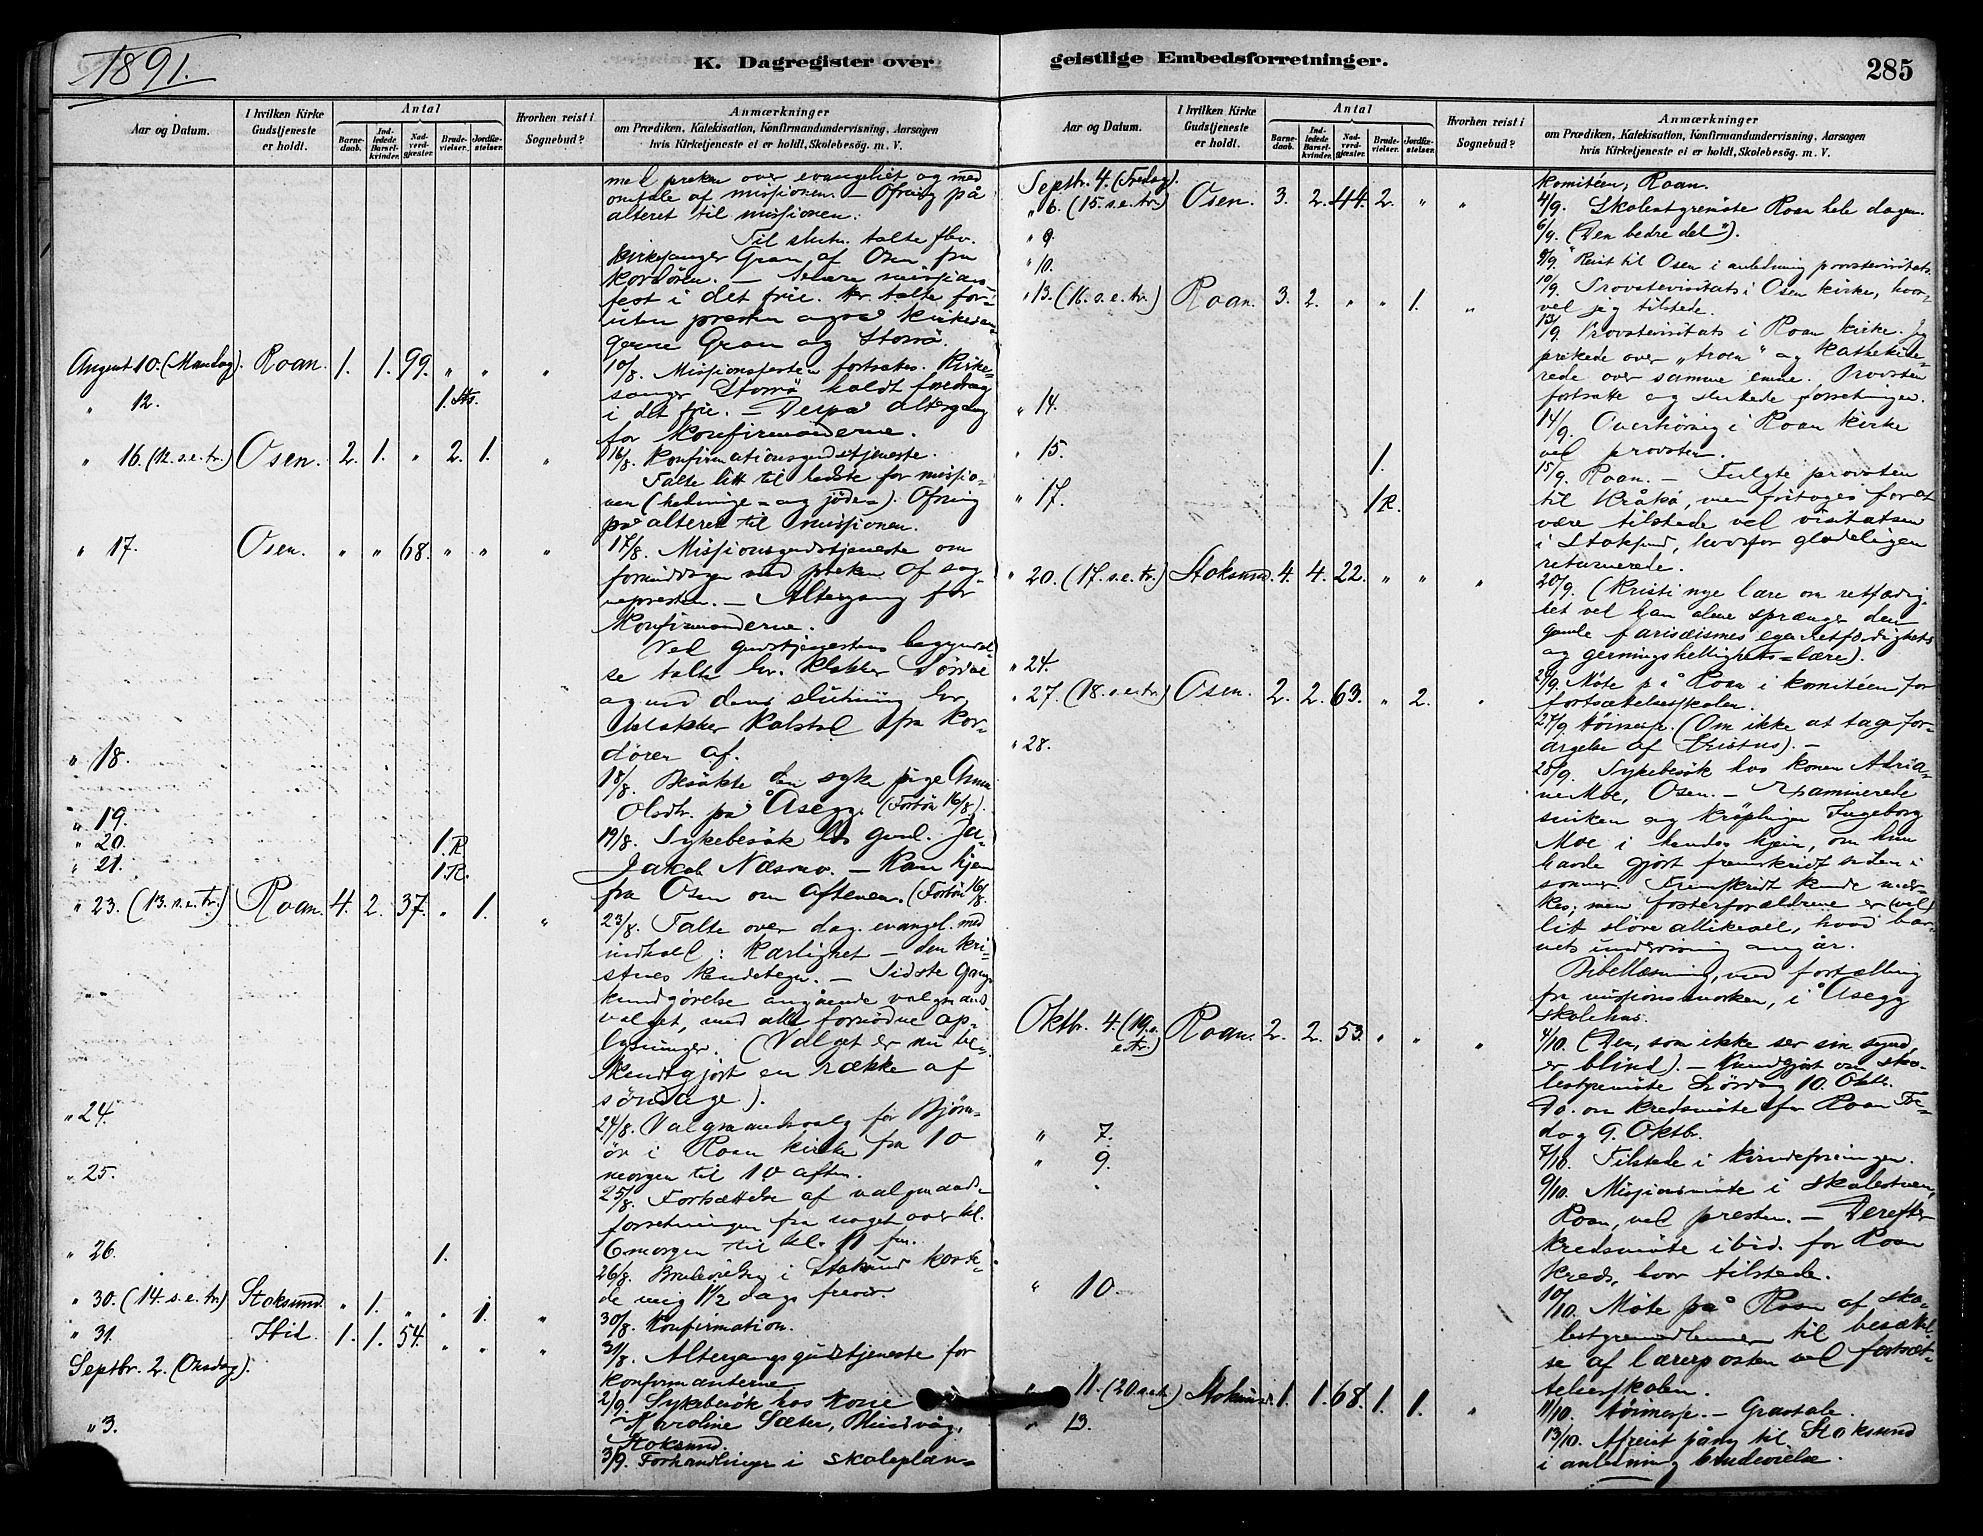 1891.
K. Dagregister over
Aar og Datum.
I hvilken Kirke
Gudstjeneste
er holdt.
Antal
Barne-
daab.
Ind-
ledede
Barsel-
kvinder.
Nad-
verd-
gjæster.
Brude-
vielser.
Jordfæ-
stelser.
Hvorhen reist i
Sognebud?
Anmærkninger
om Prædiken, Katekisation, Konfirmandundervisning, Aarsagen
hvis Kirketjeneste ei er holdt, Skolebesøg. m. V.
med preken over evangeliet og med
omtale af missionen. — Ofring på
alteret til missionen.
Til slutn. talte flev.
kirkesanger Gran af Osen fra
kordören. — Senere missions-
fest i det frie. Her talte for-
uten presten også kirkesan-
gerne Gran og Storrö.
August 10. (Mandag). Roan. 1. 1. 99. " " "
10/8. Missionsfesten fortsattes. Kirke-
sanger Storrö holdt foredrag
" 12. 1. Sts.
i det frie. — Derpå altergang
for konfirmanderne.
" 16. (12. s. e. tr.) Osen. 2. 1. " 2. 1. "
16/8. Konfirmationsgudstjeneste.
Talte litt til bedste for missio-
nen (hedninge- og jöde-). Ofring
på alteret til missionen.
" 17. Osen. " " 68. " " "
17/8. Missionsgudstjeneste om
formiddagen med preken af sog-
nepresten. — Altergang for
konfirmanderne.
Ved gudstjenestens begyndel-
se talte hr. klokker Sördal
og ved dens slutning hr.
klokker Kalstad fra kor-
dören af.
" 18.
18/8. Besökte den syke pige Anna
Olsdtr. på Åsegg. (Forbön 16/8).
" 19.
19/8. Sykebesök hos gaml. Ja-
" 20. 1. R
" 21. 1. R.
Jakob Næsmo. — Kom hjem
fra Osen om aftenen. (Forbön 16/8.
" 23. (13. s. e. tr.) Roan. 4. 2. 37. " 1. "
23/8. Talte over dag. evangel. med
indhold: Kærlighet — den kri-
stnes kendetegn. — Sidste gangs
kundgörelse angående valgmands
valget, med alle fornödne op-
lysninger. (Valget er nu be-
kendtgjort en række af
söndage).
" 24.
24/8. Valgmandsvalg for Björn-
ör i Roan kirke fra 10
morgen til 10 aften.
" 25.
25/8. Fortsættelse af valgmands-
forretningen fra noget over kl.
6 morgen til kl. 11 fm.
" 26. 1.
26/8. Brudevielsen i Stoksund kræv-
de mig 1 1/2 dags fravær.
" 30. (14. s. e. tr.) Stoksund. " 1. " " 1. "
30/8. Konfirmation.
" 31. Ibid. 1. 1. 54. " " "
31/8. Altergangsgudstjeneste for
konfirmanterne
Septbr. 2. (Onsdag).
2/9. Sykebesök hos kone
Karoline Sæter,
Stoksund.
" 3.
3/9. Forhandlinger i skoleplan-
geistlige Embedsforretninger.
285
Aar og Datum.
I hvilken Kirke
Gudstjeneste
er holdt.
Antal
Barne-
daab.
Ind-
ledede
Barsel-
kvinder.
Nad-
verd-
gjæster.
Brude-
vielser.
Jordfæ-
stelser.
Hvorhen reist i
Sognebud?
Anmærkninger
om Prædiken, Katekisation, Konfirmandundervisning, Aarsagen
hvis Kirketjeneste ei er holdt, Skolebesøg. m. V.
komitéen, Roan.
Septbr. 4. (Fredag).
4/9. Skolestyremöte Roan hele dagen.
" 6. (15. s. e. tr.) Osen. 3. 2. 44. 2. " "
6/9. (Den bedre del").
" 9.
9/9. Reist til Osen i anledning provstevisitats.
" 10.
10/9. Provstevisitats i Osen kirke, hvor-
ved jeg tilstede.
" 13. (16. s. e. tr.) Roan. 3. 2. " " 1. "
13/9. Provstevisitats i Roan kirke. Jeg
prekede over „troen" og kathekise-
rede over samme emne. Provsten
fortsatte og sluttede forretningen.
" 14.
14/9. Overhöring i Roan kirke
ved provsten.
" 15. 1.
15/9. Roan. — Fulgte provsten
til Kråkö, men fritoges for at
" 17. 1 R.
være tilstede ved visitatsen
i Stoksund, hvorfor gladeligen
returnerede.
" 20. (17. s. e. tr.) Stoksund. 4. 4. 22. " " "
20/9. (Kristi nye lære om retfærdig-
het ved ham alene sprænger den
gamle farisæismes egenretfærdighets-
og gerningshellighets-lære).
" 24.
24/9. Möte på Roan i komitéen for
fortsættelsesskolen.
" 27. (18. s. e. tr.) Osen. 2. 2. 63. " 2. "
27/9. Höimesse. (Om ikke at tage for-
argelse af Kristus). —
" 28.
28/9. Sykebesök hos konen Adria-
ne Moe, Osen. — Examinerede
sinken og kröplingen Ingeborg
Moe i hendes hjem, om hun
havde gjort fremskridt siden i
sommer. Fremskridt kunde mær-
kes; men fosterforældrene er (vel)
litt slöve allikevel, hvad bar-
nets undervisning angår.
Bibellæsning, med fortælling
fra missionsmarken, i Åsegg
skolehus.
Oktbr. 4. (19. s.
e. tr.) Roan. 2. 2. 53. " " "
4/10. (Den, som ikke ser sin synd,
er blind). — Kundgjort om sko-
lestyremöte Lördag 10. Oktbr.
Do. om kredsmöte for Roan Fre-
dag 9. Oktbr.
" 7.
7/10. Tilstede i kvindeforeningen.
" 9.
9/10. Missionsmöte i skolestuen,
Roan, ved presten. — Derefter
kredsmöte ibid. for Roan
kreds, hvor tilstede.
" 10.
10/10. Möte på Roan af sko-
lestyremedlemmer til besættel-
se af lærerposten ved fortsæt-
telsesskolen.
" 11. (20. s. e. tr.) Stoksund. 1. 1. 68. 1. 1. "
11/10. Höimesse. — Gravtale.
" 13.
13/10. Afreist påny til Stoksund
i anledning brudevielse.